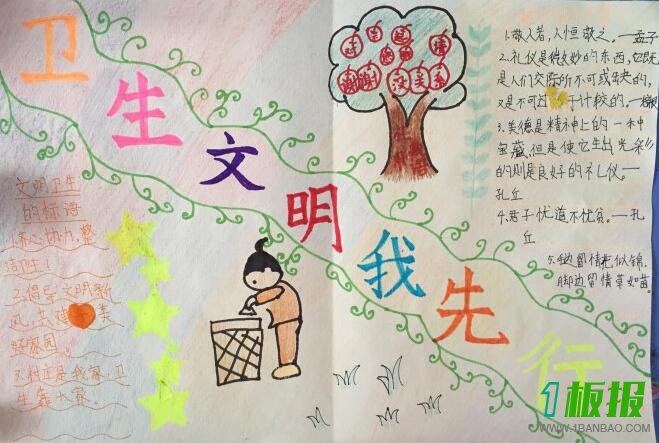 卫生文明我先行
文明卫生
的标语
1.齐心协力,整
治卫生!
2.倡导文明新
风,共建 美
好家园。
3.村庄是我家,卫
生靠大家。
谢谢 没关系
1.敬人者,人恒敬之。—孟子
2.礼仪是微妙的东西,它既
是人们交际所不可或缺的,
又是不可过于计较的。—培根
3.美德是精神上的一种
宝藏,但是使它生出光彩
的则是良好的礼仪。—
孔丘
4.君子忧道不忧贫。—孔
丘
5.手边留情花似锦,
脚边留情草如茵。
1板报
WWW.1BANBAO.COM